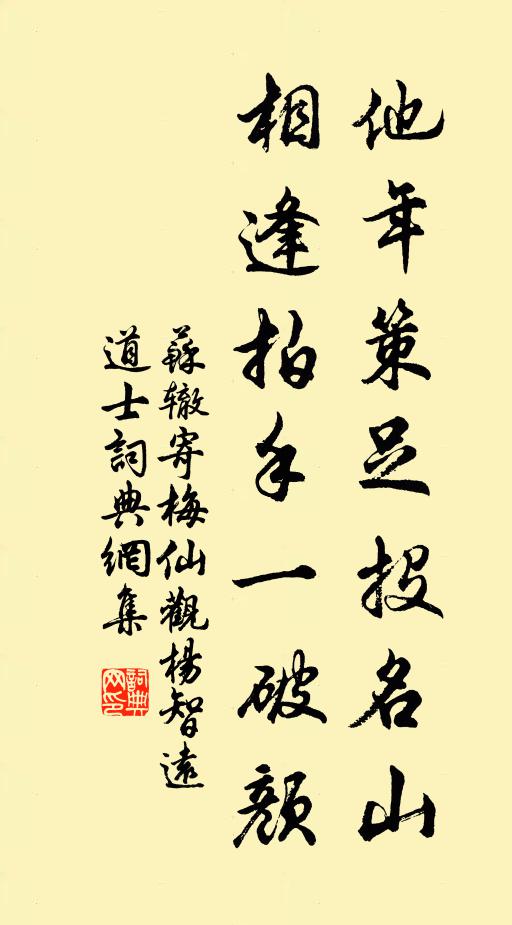 他年策足投名山
相逢拍手一破顏
蘇辙寄梅仙觀楊智遠
道士詞典網集
詞典
网印